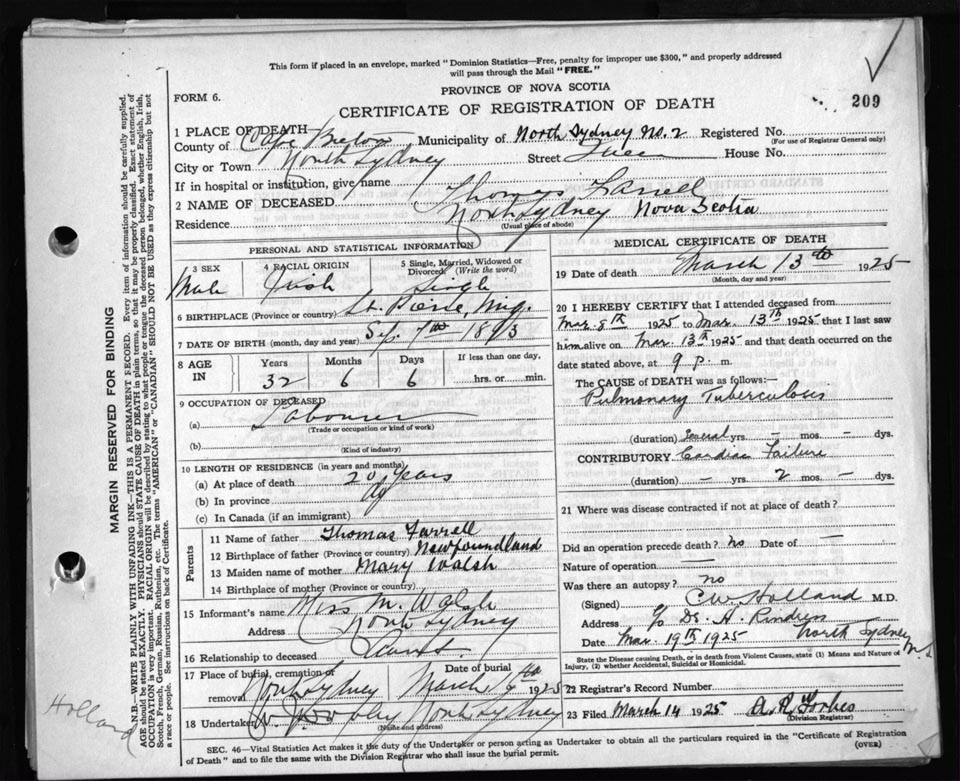 This form if placed in an envelope, marked "Dominion Statistics—Free, penalty for improper use $300," and properly addressed
will pass through the Mail "FREE."
PROVINCE OF NOVA SCOTIA
FORM 6.
CERTIFICATE OF REGISTRATION OF DEATH
209
1 PLACE OF DEATH
County of Cape Breton Municipality of North Sydney No. 2 Registered No.
(For use of Registrar General only)
City or Town North Sydney Street Queen House No.
If in hospital or institution, give name
2 NAME OF DECEASED Thomas Farrell
Residence North Sydney Nova Scotia
(Usual place of abode)
PERSONAL AND STATISTICAL INFORMATION
3 SEX Male
4 RACIAL ORIGIN Irish
5 Single, Married, Widowed or Divorced (Write the word) Single
6 BIRTHPLACE (Province or country) St. Pierre, Miq.
7 DATE OF BIRTH (month, day and year) Sep. 7th 1893
8 AGE IN
Years Months Days If less than one day,
32 6 6 hrs. or min.
9 OCCUPATION OF DECEASED
(a) Labourer
(Trade or occupation or kind of work)
(b)
(Kind of industry)
10 LENGTH OF RESIDENCE (in years and months)
(a) At place of death 20 years
(b) In province
(c) In Canada (if an immigrant)
Parents
11 Name of father Thomas Farrell
12 Birthplace of father (Province or country) Newfoundland
13 Maiden name of mother Mary Walsh
14 Birthplace of mother (Province or country)
15 Informant's name Miss M. Walsh
Address North Sydney
16 Relationship to deceased Aunt
17 Place of burial, cremation or removal North Sydney
Date of burial March 1925
18 Undertaker North Sydney
(Name and address)
MEDICAL CERTIFICATE OF DEATH
19 Date of death March 13th 1925
(Month, day and year)
20 I HEREBY CERTIFY that I attended deceased from
Mar. 8th 1925 to Mar. 13th 1925 that I last saw
him alive on Mar. 13th 1925 and that death occurred on the
date stated above, at 9 p. m.
The CAUSE of DEATH was as follows:—
Pulmonary Tuberculosis
(duration) Several yrs. — mos. — dys.
CONTRIBUTORY Cardiac Failure
(duration) — yrs. 2 mos. — dys.
21 Where was disease contracted if not at place of death?
Did an operation precede death? No Date of —
Nature of operation —
Was there an autopsy? no
(Signed) C. W. Holland M.D.
Address c/o Dr. H. North Sydney N.S.
Date Mar. 19th 1925
State the Disease causing Death, or in death from Violent Causes, state (1) Means and Nature of
Injury, (2) whether Accidental, Suicidal or Homicidal.
22 Registrar's Record Number
23 Filed March 14 1925 A. R. Forbes
(Division Registrar)
SEC. 46—Vital Statistics Act makes it the duty of the Undertaker or person acting as Undertaker to obtain all the particulars required in the "Certificate of Registration
of Death" and to file the same with the Division Registrar who shall issue the burial permit.
(OVER)
MARGIN RESERVED FOR BINDING
N.B.—WRITE PLAINLY WITH UNFADING INK—THIS IS A PERMANENT RECORD. Every item of information should be carefully supplied.
AGE should be stated EXACTLY. PHYSICIANS should STATE CAUSE OF DEATH in plain terms, so that it may be properly classified. Exact statement of
OCCUPATION is very important. RACIAL ORIGIN will be described by stating to what people or tongue the deceased person belonged, whether English, Irish,
Scotch, French, German, Russian, Ruthenian, etc. The terms "AMERICAN" or "CANADIAN" SHOULD NOT BE USED as they express citizenship but not
a race or people. See instructions on back of Certificate.
Holland